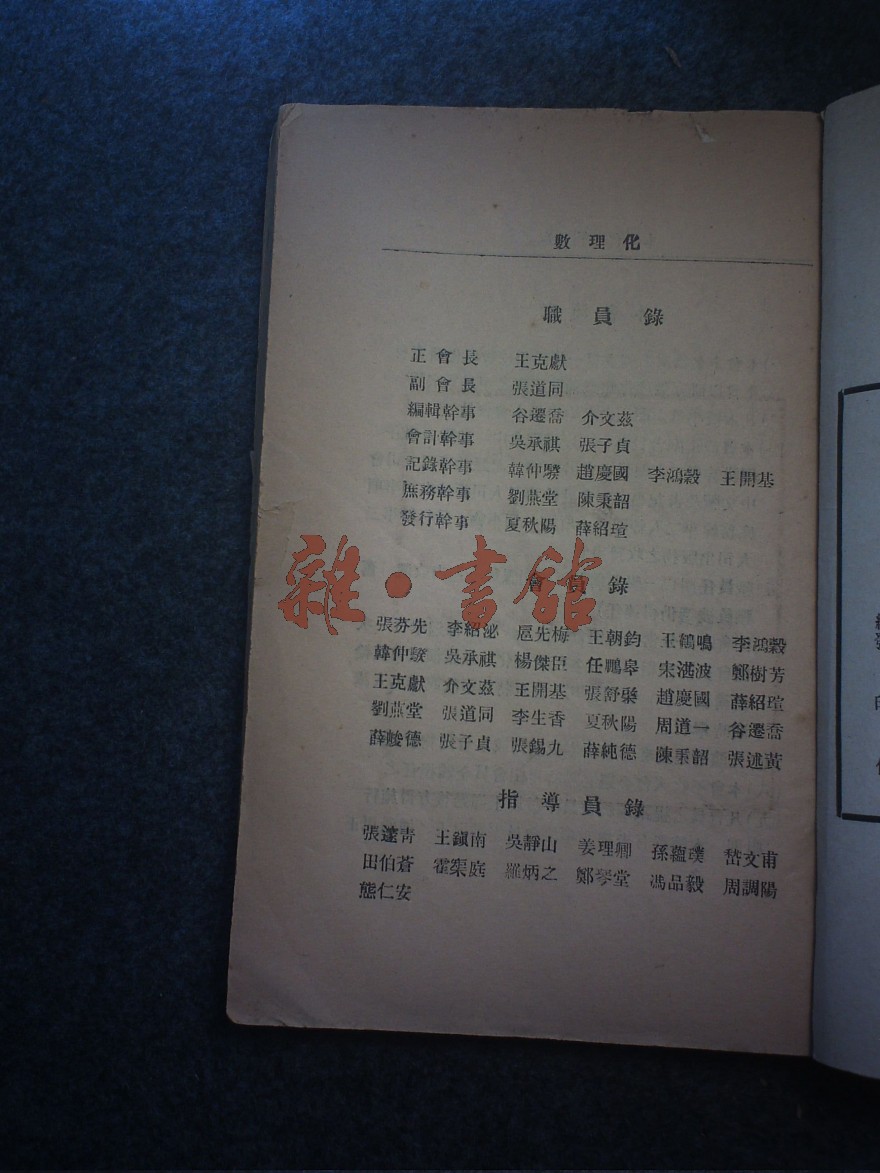 數理化
職員錄
正會長 王克獻
副會長 張道同
編輯幹事 谷遷喬 介文茲
會計幹事 吳承祺 張子貞
記錄幹事 韓仲騤 趙慶國 李鴻穀 王開基
庶務幹事 劉燕堂 陳秉韶
發行幹事 夏秋陽 薛紹瑄
雜·書舘
會員錄
張芬先 李紹泌 扈先梅 王朝鈞 王鶴鳴 李鴻穀
韓仲騤 吳承祺 楊傑臣 任鵬皋 宋滋波 鄭樹芳
王克獻 介文茲 王開基 張舒櫱 趙慶國 薛紹瑄
劉燕堂 張道同 李生香 夏秋陽 周道一 谷遷喬
薛峻德 張子貞 張錫九 薛純德 陳秉韶 張述黃
指導員錄
張蓬青 王鎭南 吳靜山 姜理卿 孫蘊璞 嵆文甫
田伯蒼 霍榘庭 羅炳之 鄭琴堂 馮品毅 周調陽
熊仁安